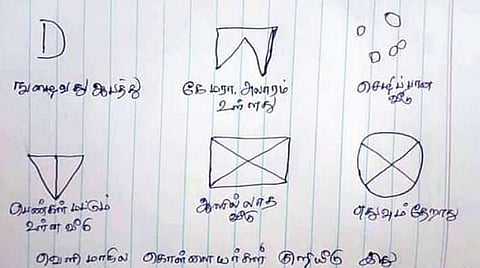 D
நுழைவது ஆபத்து
கேமரா, அலாரம்
உள்ளது
செழிப்பான
வீடு
பெண்கள் மட்டும்
உள்ள வீடு
ஆளில்லாத
வீடு
எதுவும் தேறாது
வெளி மாநில கொள்ளையர்கள் குறியீடு இது